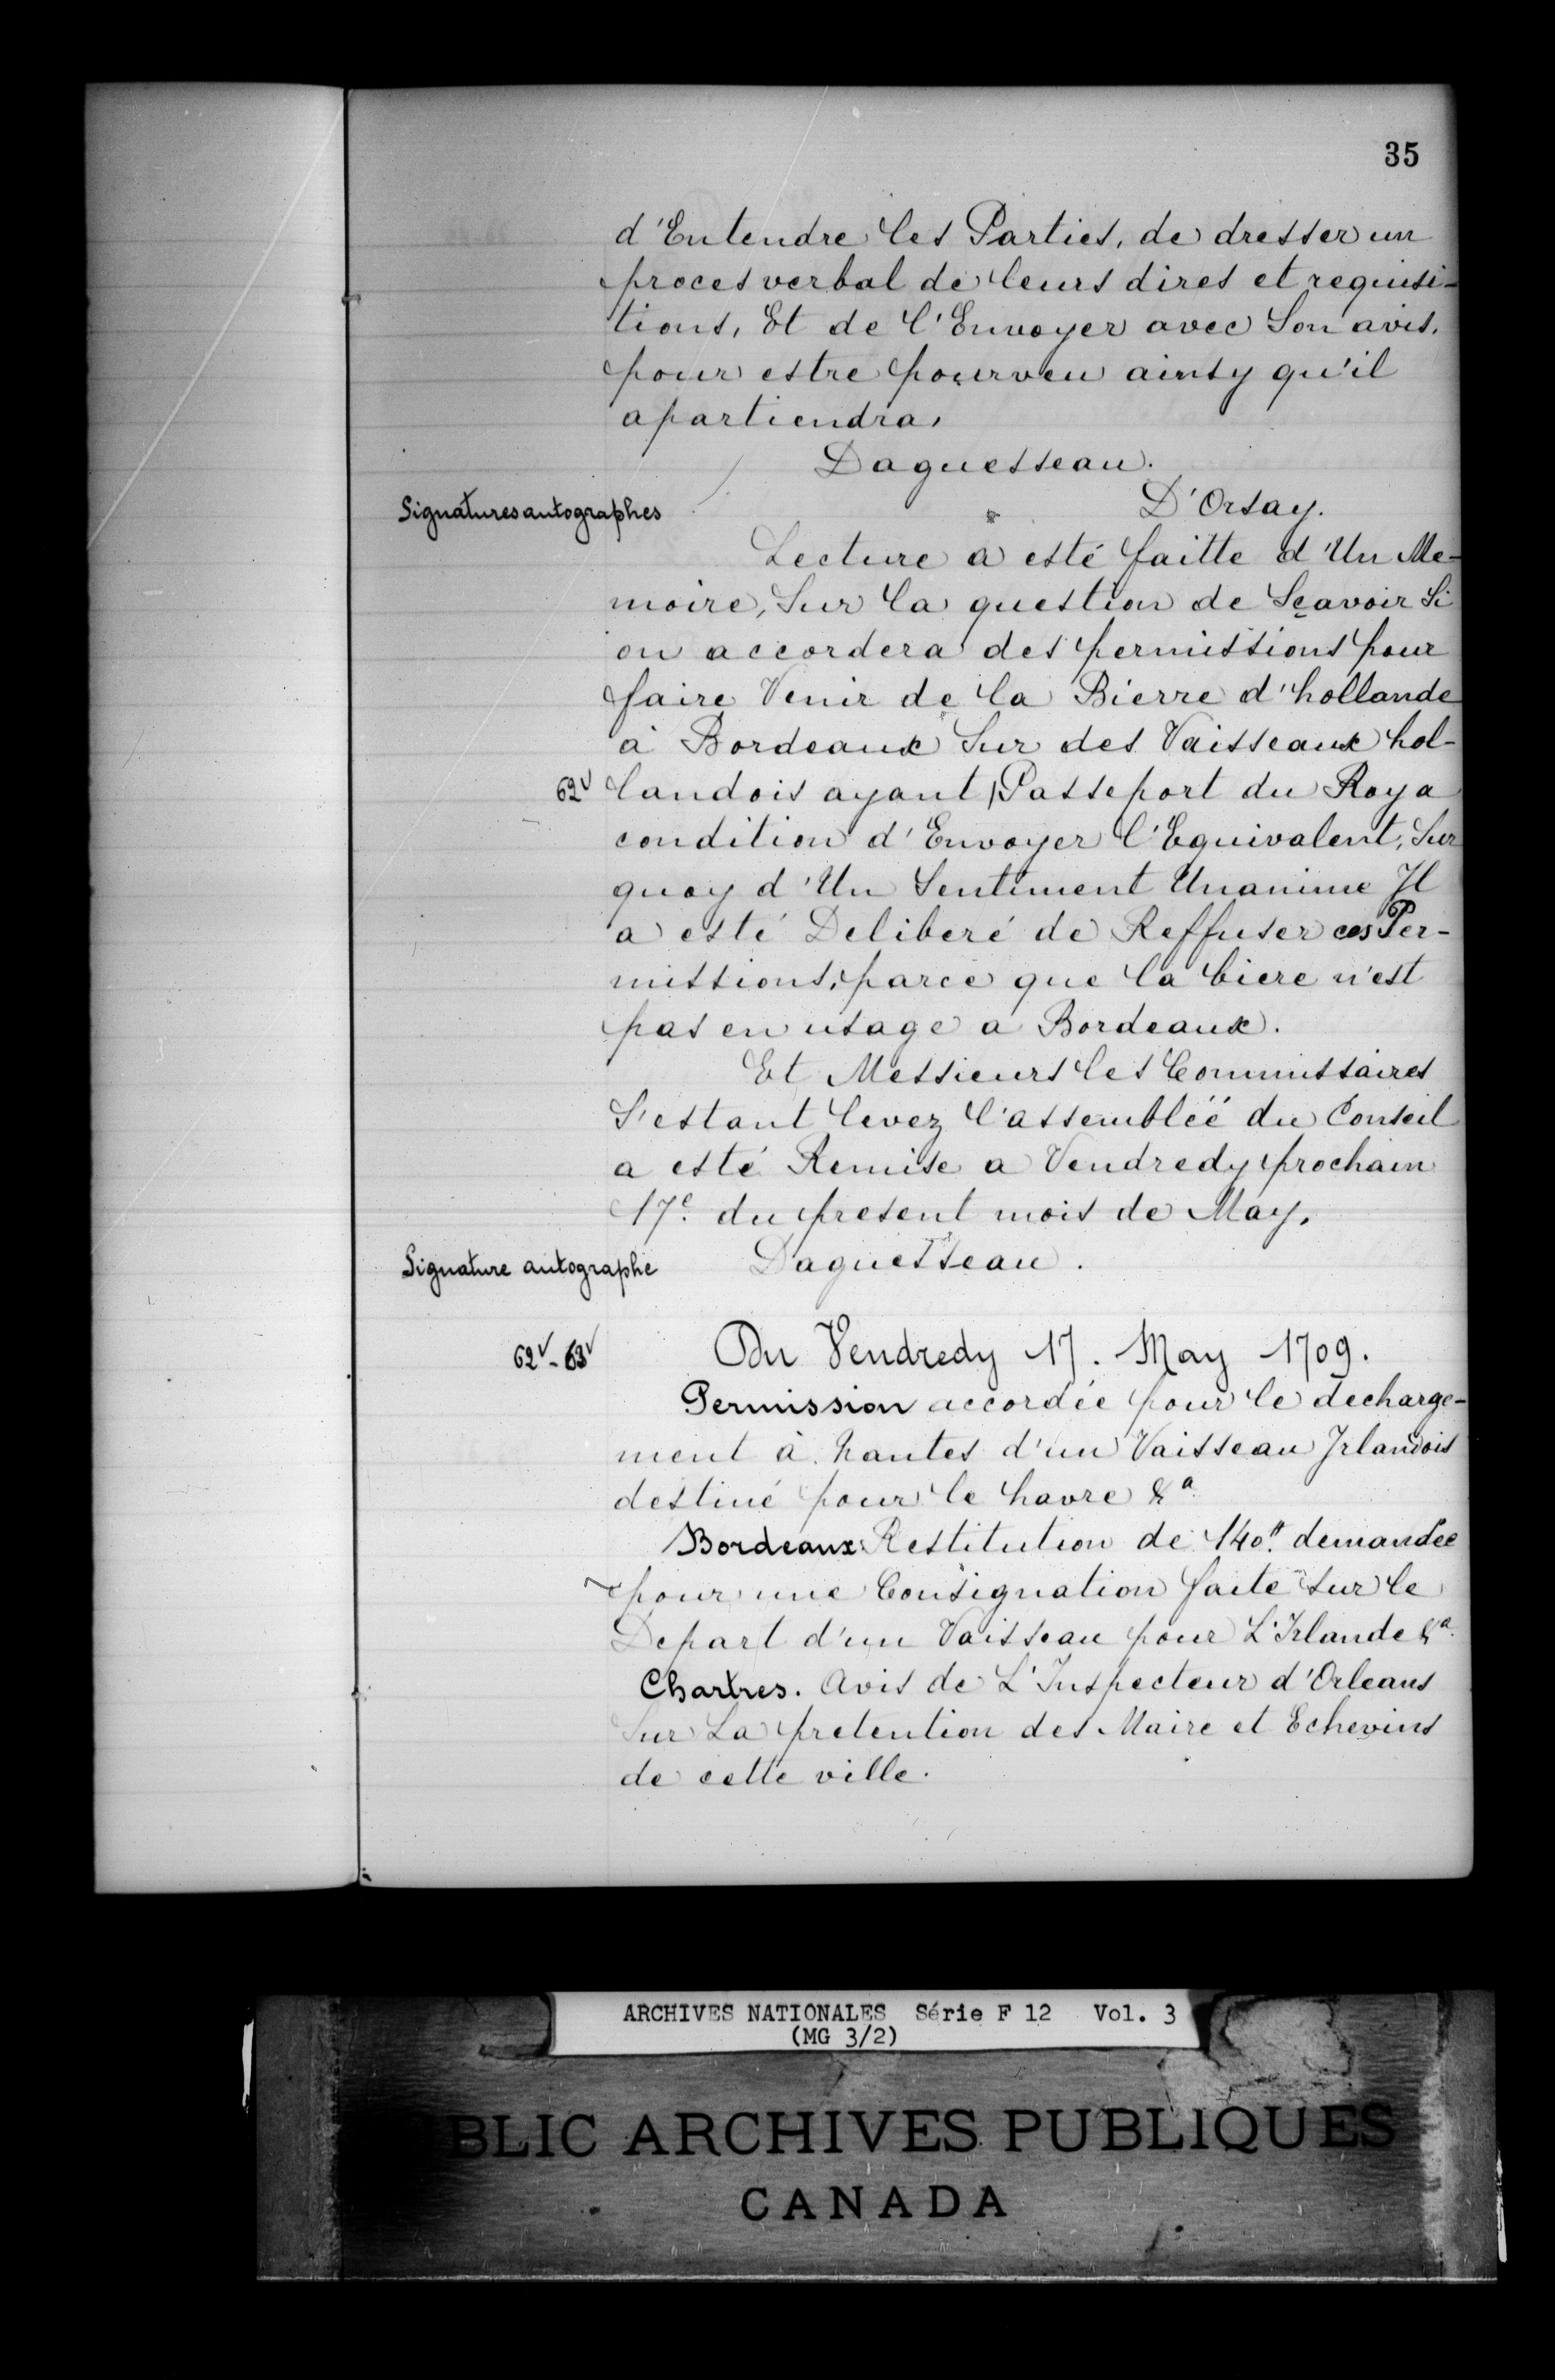 35
d'Entendre les Parties, de dresser un
proces verbal de leurs dires et requisi-
tions, Et de l'Envoyer avec Son avis,
pour estre pourveu ainsy qu'il
apartiendra,
Daguesseau.
Signatures autographes
D'Orsay.
Lecture a esté faitte d'Un Me-
moire, Sur la question de Sçavoir Si
on accordera des permissions pour
faire Venir de la Bierre d'hollande
à Bordeaux Sur des Vaisseaux hol-
62v landois ayant | Passeport du Roy a
condition d'Envoyer l'Equivalent, Sur
quoy d'Un Sentiment Unanime Il
a esté Deliberé de Reffuser ces Per-
missions, parce que la biere n'est
pas en usage a Bordeaux.
Et Messieurs les Commissaires
S'estant levez l'assembléé du Conseil
a esté Remise a Vendredy prochain
17e. du present mois de May.
Signature autographe Daguesseau.
62v-63v Du Vendredy 17. May 1709.
Permission accordée pour le decharge-
ment à nantes d'un Vaisseau Irlandois
destiné pour le havre &a
Bordeaux Restitution de 140tt demandée
pour une Consignation faite sur le
Depart d'un Vaisseau pour L'Irlande &a.
Chartres. Avis de L'Inspecteur d'Orleans
Sur La pretention des Maire et Echevins
de cette ville.
ARCHIVES NATIONALES Série F 12 Vol. 3
(MG 3/2)
BLIC ARCHIVES PUBLIQUES
CANADA